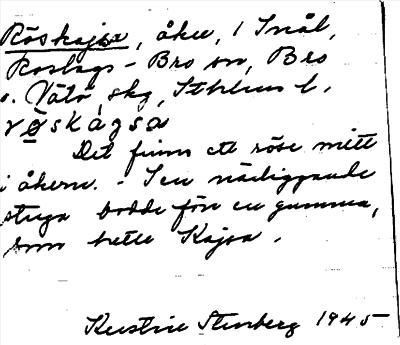 Röskajsa, åker, 1 Snål,
Roslags-Bro sn, Bro
o. Vätö skg, Sthlms l.
röskàgsa
Det finns ett röse mitt
i åkern. - I en närliggande
stuga bodde förr en gumma,
som hette Kajsa.
Kerstin Stenberg 1945